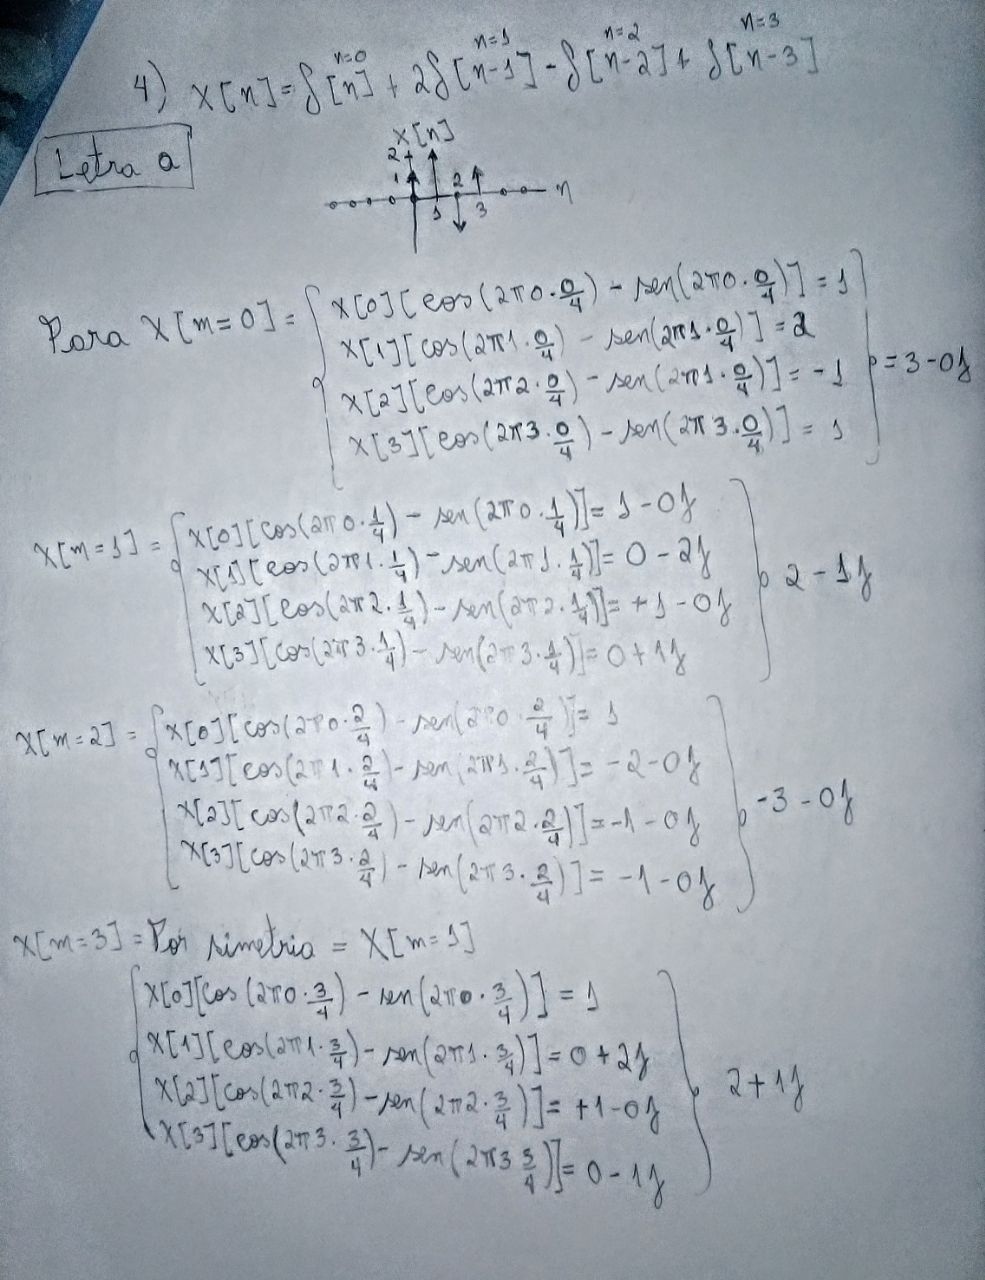 n=0 n=1 n=2 n=3
4) x[n]=δ[n] + 2δ[n-1] - δ[n-2] + δ[n-3]
Letra a
x[n]
2
1 2 n
1 3
Para X[m=0] = { x[0][cos(2π0·0/4) - sen(2π0·0/4)] = 1
x[1][cos(2π1·0/4) - sen(2π1·0/4)] = 2
x[2][cos(2π2·0/4) - sen(2π1·0/4)] = -1 } = 3-0j
x[3][cos(2π3·0/4) - sen(2π3·0/4)] = 1
X[m=1] = { x[0][cos(2π0·1/4) - sen(2π0·1/4)] = 1-0j
x[1][cos(2π1·1/4) - sen(2π1·1/4)] = 0-2j } 2-1j
x[2][cos(2π2·1/4) - sen(2π2·1/4)] = +1-0j
x[3][cos(2π3·1/4) - sen(2π3·1/4)] = 0+1j
X[m=2] = { x[0][cos(2π0·2/4) - sen(2π0·2/4)] = 1
x[1][cos(2π1·2/4) - sen(2π1·2/4)] = -2-0j
x[2][cos(2π2·2/4) - sen(2π2·2/4)] = -1-0j } -3-0j
x[3][cos(2π3·2/4) - sen(2π3·2/4)] = -1-0j
X[m=3] = Por simetria = X[m=1]
{ x[0][cos(2π0·3/4) - sen(2π0·3/4)] = 1
x[1][cos(2π1·3/4) - sen(2π1·3/4)] = 0+2j
x[2][cos(2π2·3/4) - sen(2π2·3/4)] = +1-0j } 2+1j
x[3][cos(2π3·3/4) - sen(2π3 3/4)] = 0-1j